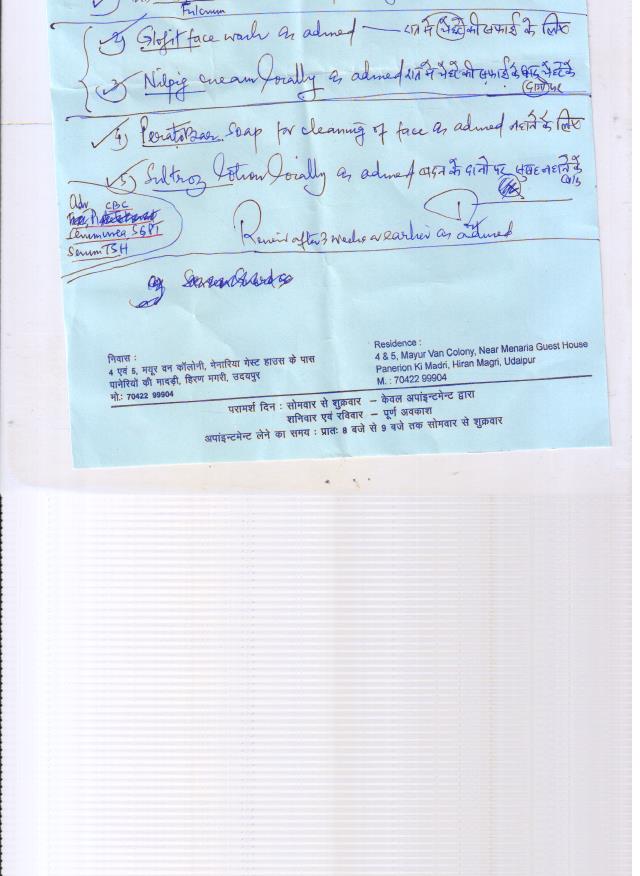 Fulcrum
2) Glofit face wash as advised — रात में चेहरे की सफाई के लिए
3) Nilpig cream locally as advised रात में चेहरे की सफाई के बाद चेहरे के
दागो पर
4) Perato Bar soap for cleaning of face as advised नहाने के लिए
5) Sultroz lotion locally as advised बदन के दानो पर सुबह नहाने के
Adv CBC
Serum urea SGPT
Serum TSH
Review after 3 weeks or earlier as advised
निवास :
4 एवं 5, मयूर वन कॉलोनी, मेनारिया गेस्ट हाउस के पास
पानेरियों की मादड़ी, हिरण मगरी, उदयपुर
मो.: 70422 99904
Residence :
4 & 5, Mayur Van Colony, Near Menaria Guest House
Panerion Ki Madri, Hiran Magri, Udaipur
M. : 70422 99904
परामर्श दिन : सोमवार से शुक्रवार – केवल अपांइन्टमेन्ट द्वारा
शनिवार एवं रविवार – पूर्ण अवकाश
अपांइन्टमेन्ट लेने का समय : प्रातः 8 बजे से 9 बजे तक सोमवार से शुक्रवार